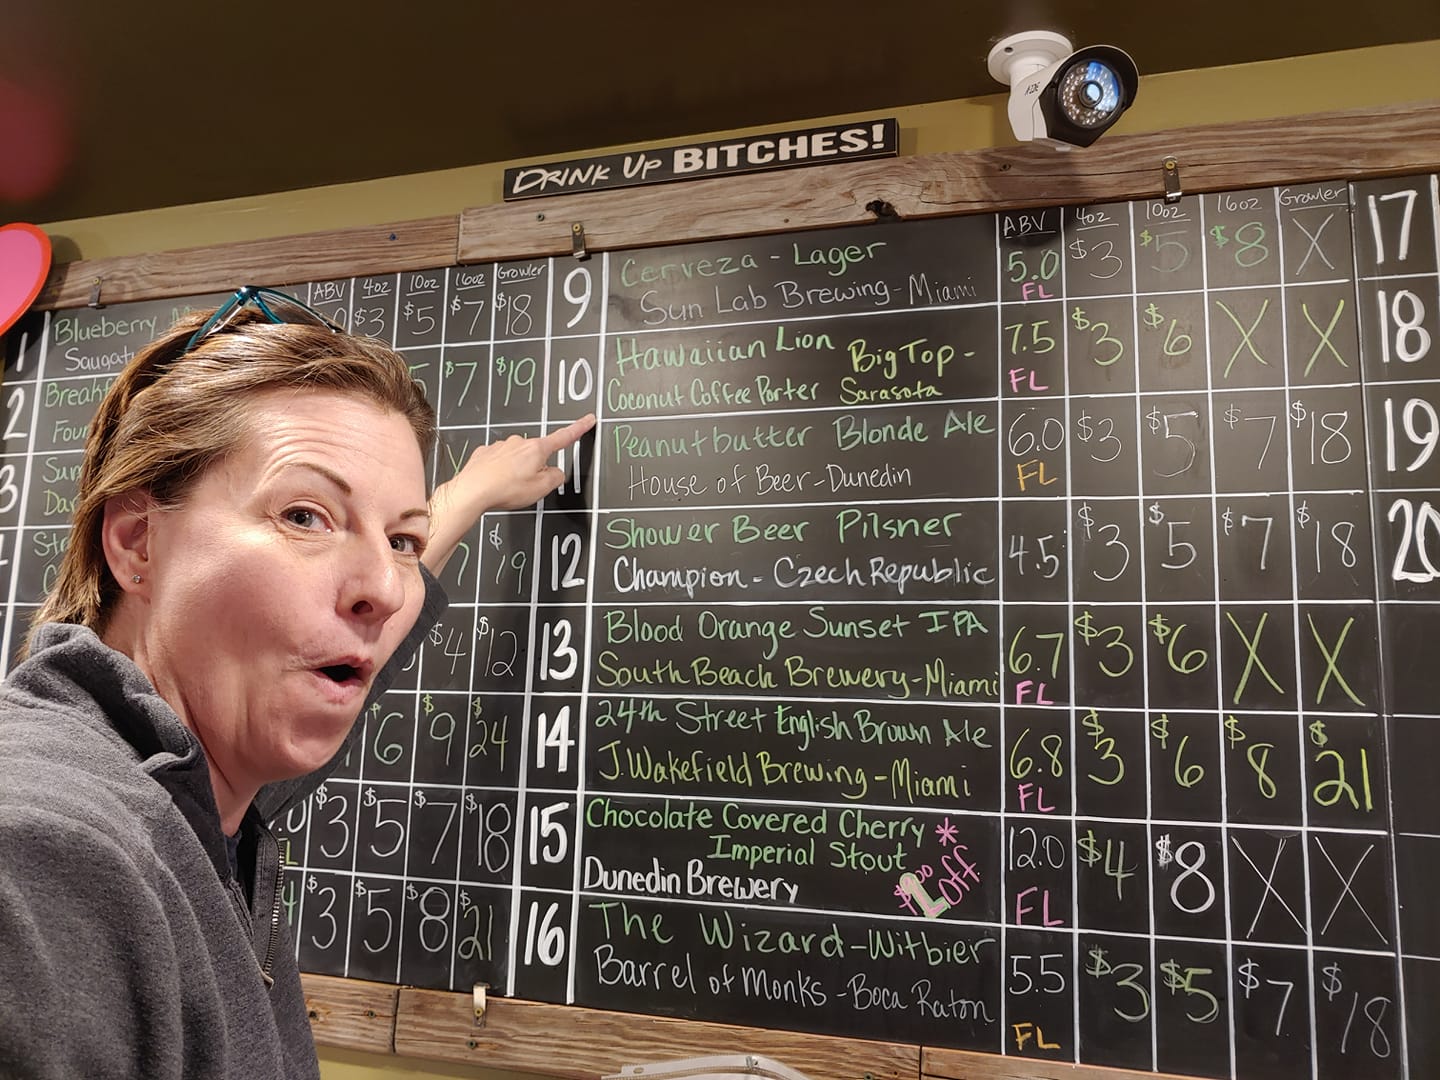 DRINK UP BITCHES!
ABV 4oz 10oz 16oz Growler
1 Blueberry
$3 $5 $7 $18
2
$7 $19
3
$19
$4 $12
$6 $9 $24
$3 $5 $7 $18
$3 $5 $8 $21
ABV 4oz 10oz 16oz Growler
9 Cerveza - Lager 5.0 $3 $5 $8 X
Sun Lab Brewing - Miami FL
10 Hawaiian Lion Big Top - 7.5 $3 $6 X X
Coconut Coffee Porter Sarasota FL
11 Peanutbutter Blonde Ale 6.0 $3 $5 $7 $18
House of Beer - Dunedin FL
12 Shower Beer Pilsner 4.5 $3 $5 $7 $18
Champion - Czech Republic
13 Blood Orange Sunset IPA 6.7 $3 $6 X X
South Beach Brewery - Miami FL
14 24th Street English Brown Ale 6.8 $3 $6 $8 $21
J. Wakefield Brewing - Miami FL
15 Chocolate Covered Cherry * 12.0 $4 $8 X X
Imperial Stout
Dunedin Brewery $1.00 off FL
16 The Wizard - Witbier 5.5 $3 $5 $7 $18
Barrel of Monks - Boca Raton FL
17
18
19
20